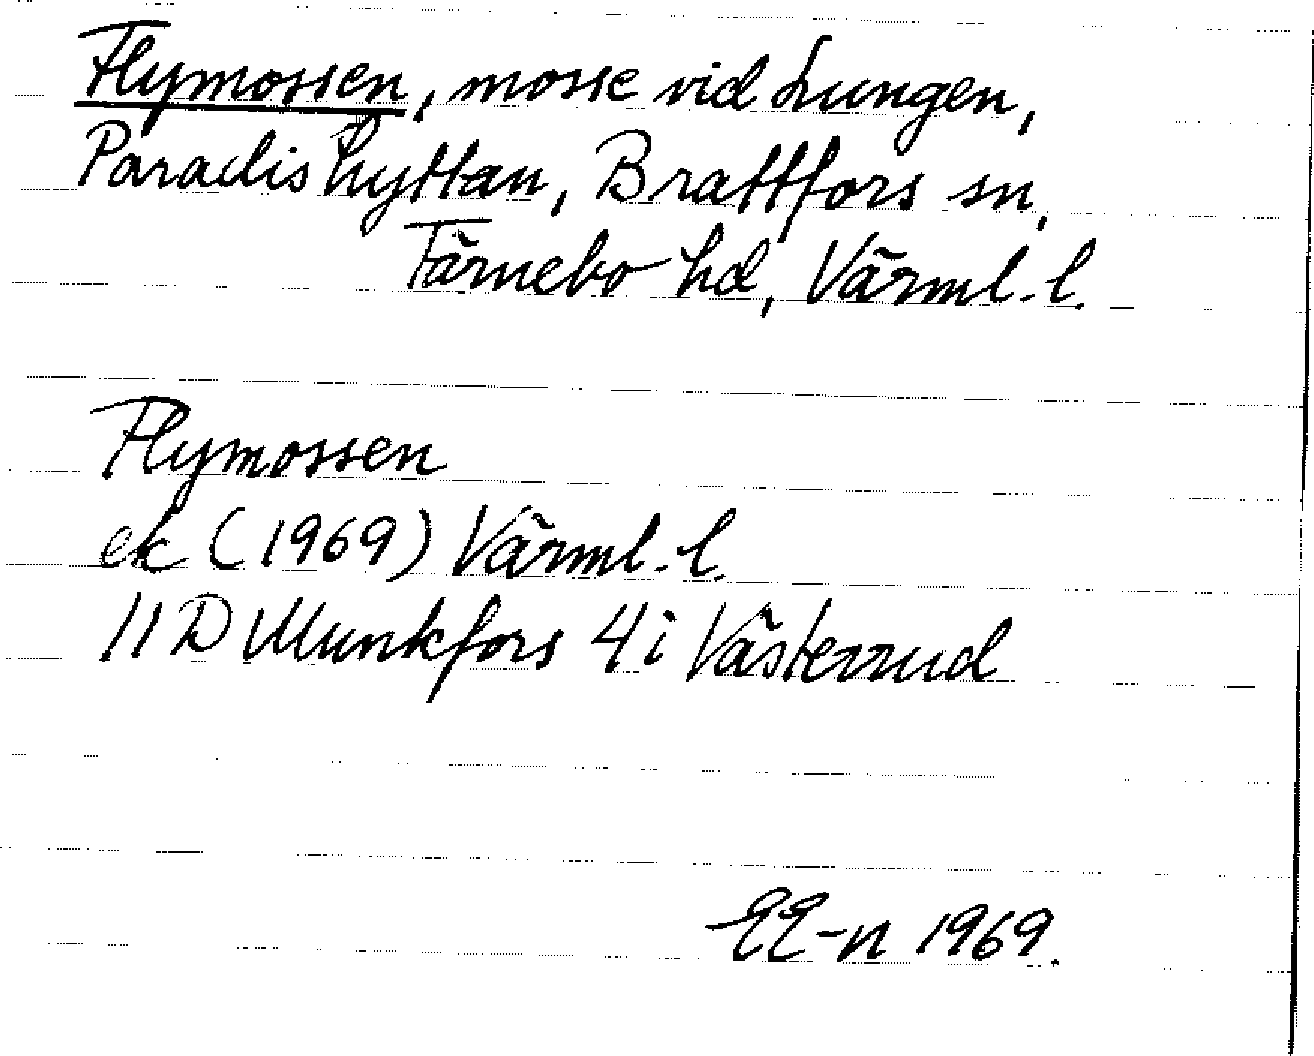 Flymossen, mosse vid Lungen,
Paradishyttan, Brattfors sn,
Färnebo hd, Värml. l.
Flymossen
ek (1969) Värml. l.
11D Munkfors 4i Västerrud
EE-n 1969.